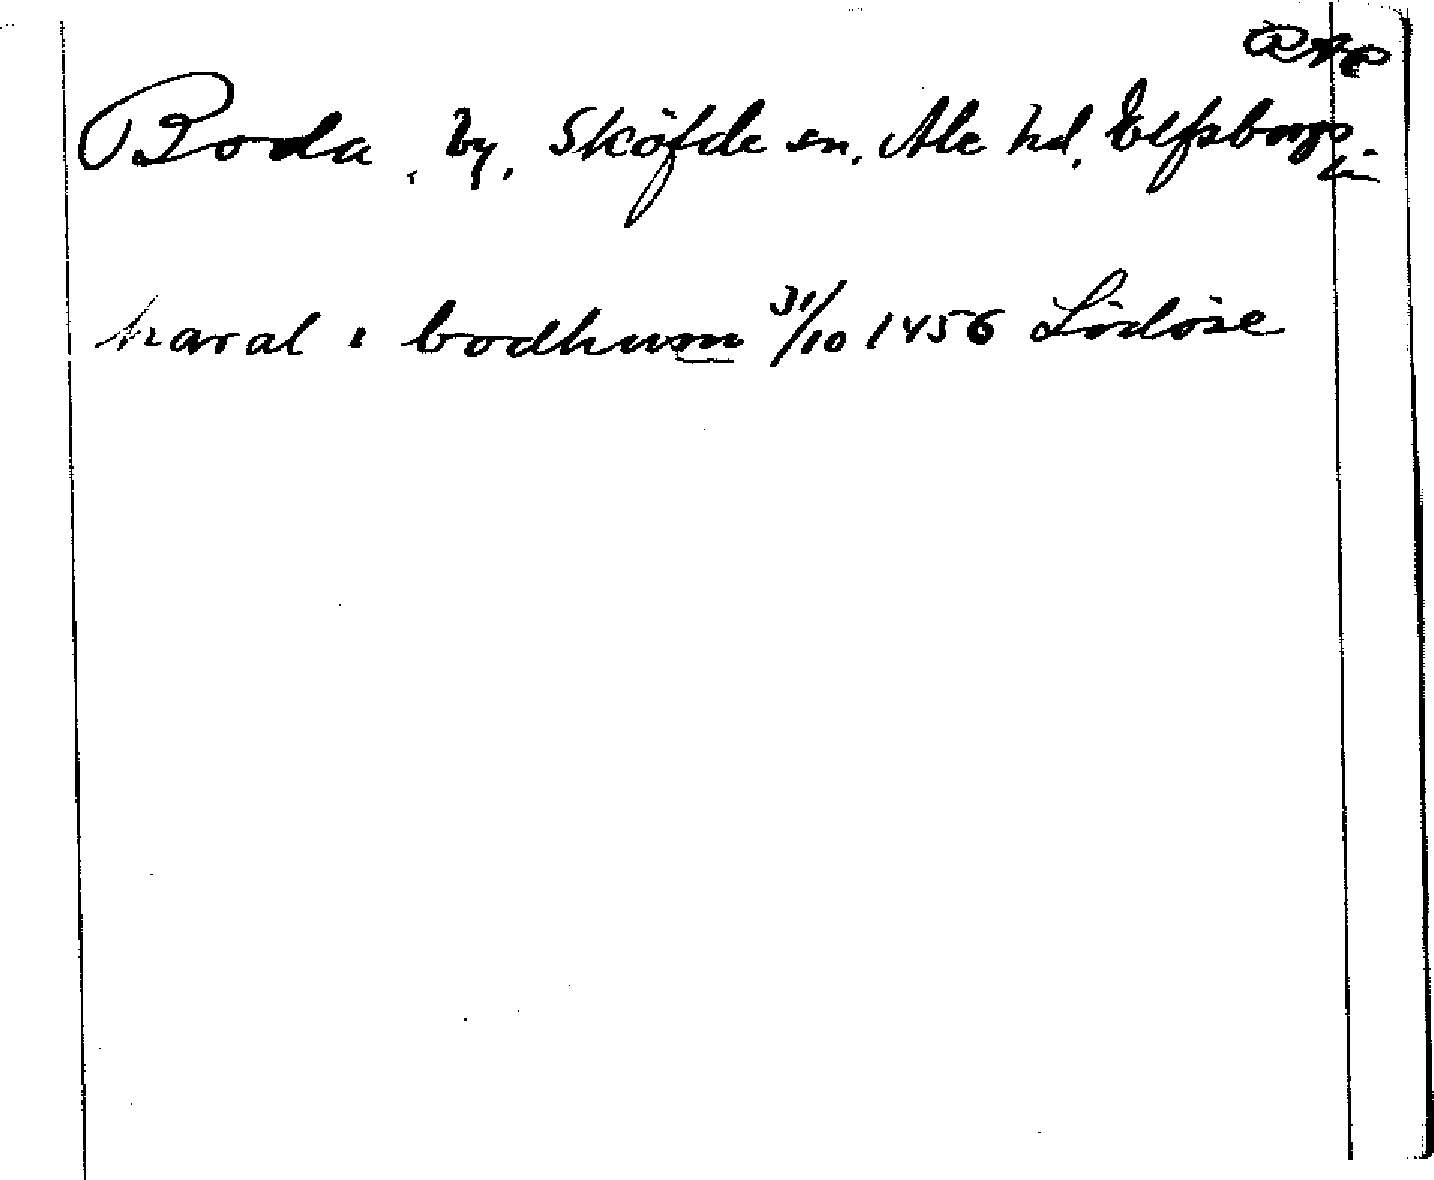 RAP
Boda, by, Sköfde sn, Ale hd, Elfsborgs
län
haral i bodhum 31/10 1456 Lödöse